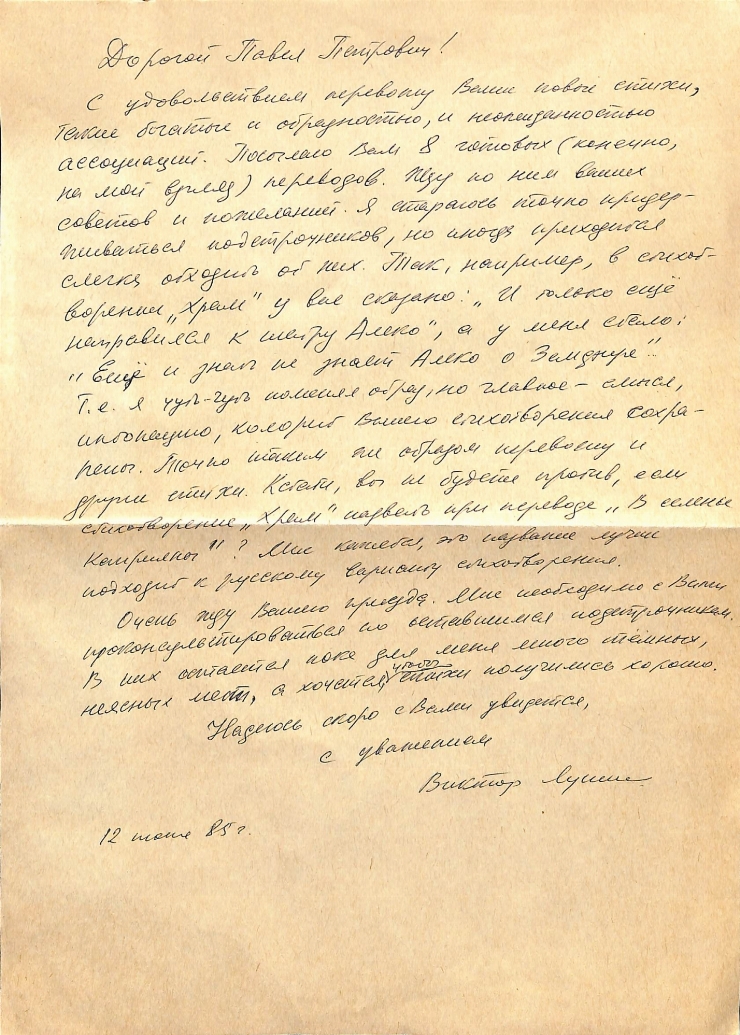 Дорогой Павел Петрович!
С удовольствием перевожу Ваши новые стихи,
такие богатые и образностью, и неожиданностью
ассоциаций. Посылаю Вам 8 готовых (конечно,
на мой взгляд) переводов. Жду по ним ваших
советов и пожеланий. Я стараюсь точно придер-
живаться подстрочников, но иногда приходится
слегка отходить от них. Так, например, в стихот-
ворении „Храм" у вас сказано: „И только ещё
направился к шатру Алеко", а у меня стало:
„Ещё и знать не знает Алеко о Земфире".
Т.е. я чуть-чуть поменял образ, но главное – смысл,
интонацию, колорит Вашего стихотворения сохра-
нены. Точно таким же образом перевожу и
другие стихи. Кстати, вы не будете против, если
стихотворение „Храм" назвать при переводе „В селенье
Каприяны"? Мне кажется, это название лучше
подходит к русскому варианту стихотворения.
Очень жду Вашего приезда. Мне необходимо с Вами
проконсультироваться по оставшимся подстрочникам.
В них остаётся пока для меня много тёмных,
неясных мест, а хочется, чтобы стихи получились хорошо.
Надеюсь скоро с Вами увидеться,
с уважением
Виктор Лунин
12 июня 85 г.